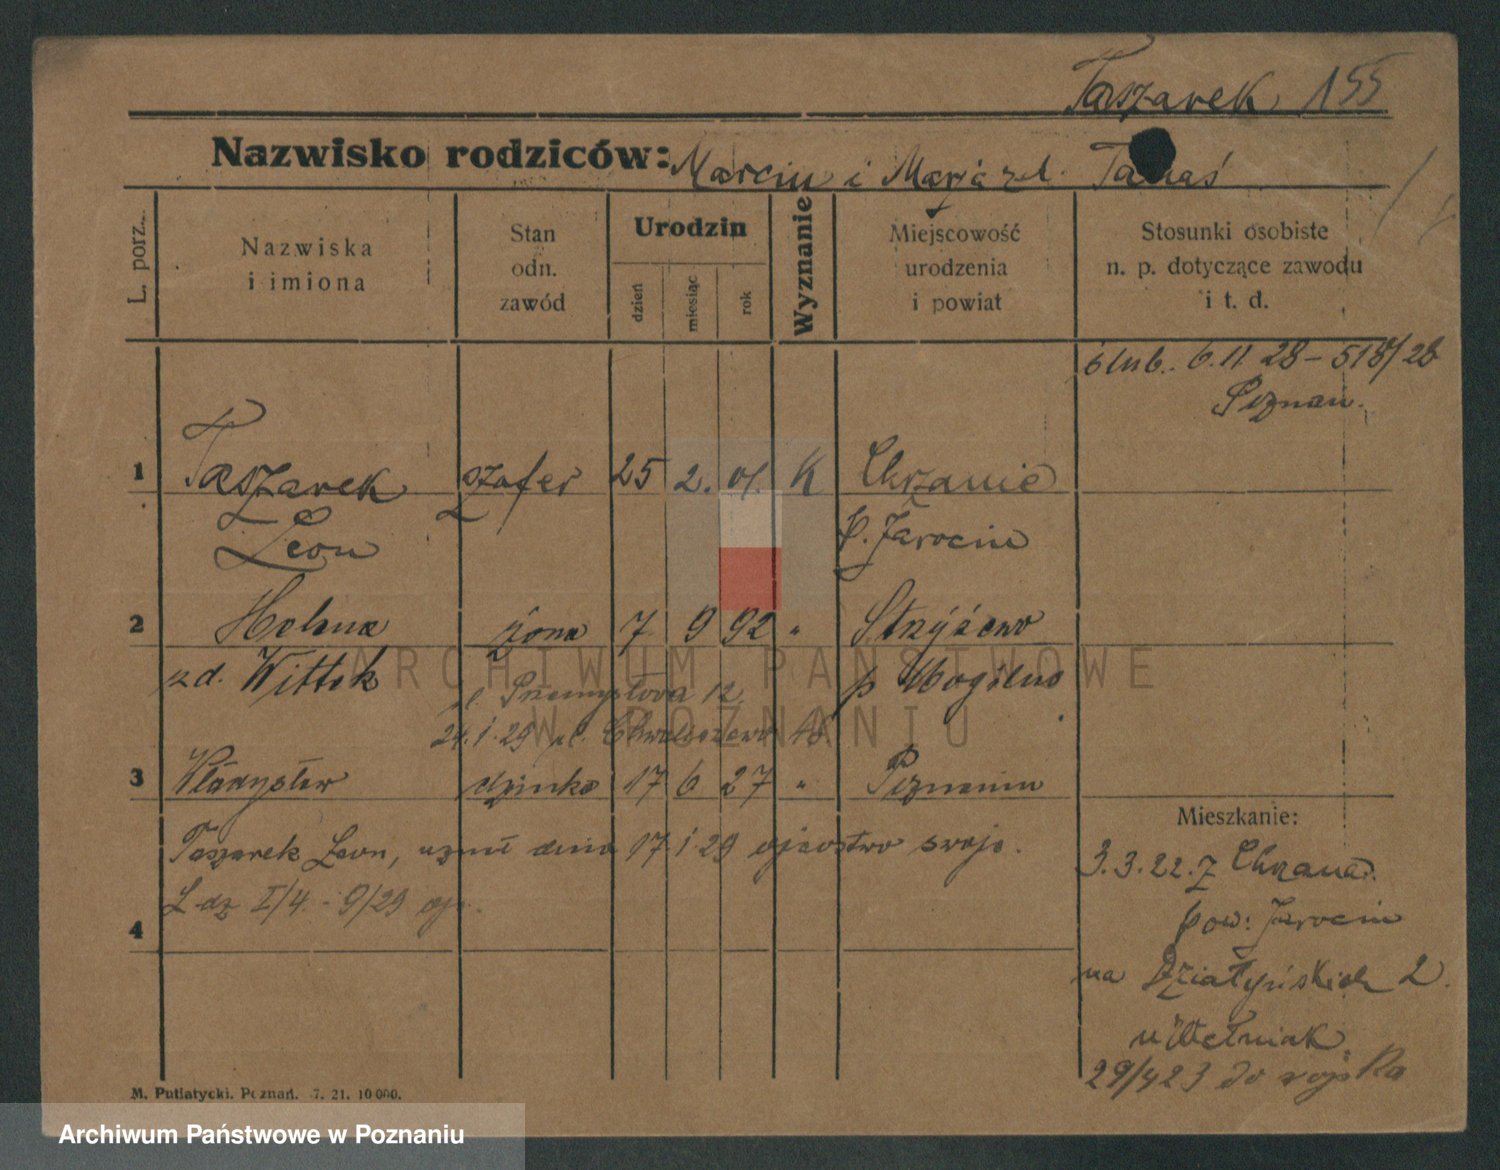 Taszarek 155
Nazwisko rodziców: Marcin i Marja zd.
L. porz.
Nazwiska
i imiona
Stan
odn.
zawód
Urodzin
dzień
miesiąc
rok
Wyznanie
Miejscowość
urodzenia
i powiat
Stosunki osobiste
n. p. dotyczące zawodu
i t. d.
ślub. 6.11 28 - 518/28
Poznań.
1 Taszarek szofer 25 2. 01. K Chrzanie
Leon p. Jarocin
2 Helena żona 7 9 92 " Strzyżewo
zd. Wittek p Mogilno
ul. Przemysłowa 12
24.1.29 ul. Chwaliszewo
3 Władysław dziecko 17 6 27 " Poznaniu
Taszarek Leon, uznał dnia 17.1.29 ojcostwo swoje.
L dz I/4. - 9/29
4
Mieszkanie:
3.3.22. z Chrzana
pow: Jarocin
na Działyńskich 2.
u Wełniak
29/4 23 do wojska
M. Putiatycki. Poznań. 7. 21. 10 000.
ARCHIWUM PAŃSTWOWE
W POZNANIU
Archiwum Państwowe w Poznaniu